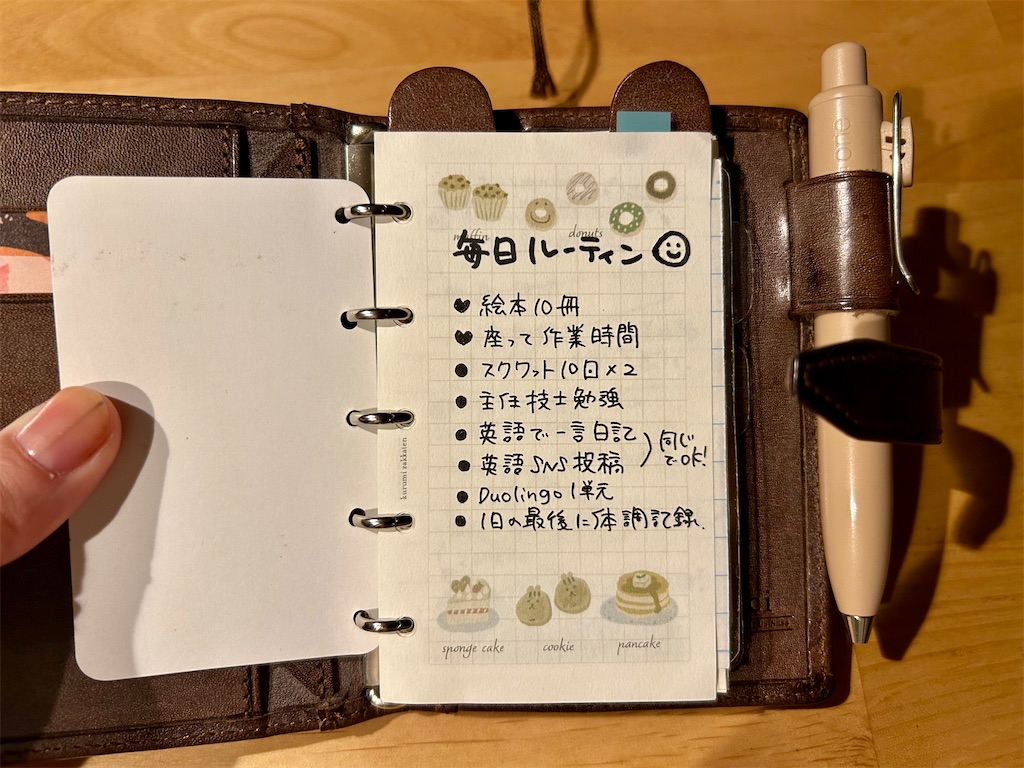 muffin
donuts
毎日ルーティン
♥ 絵本10冊
♥ 座って作業時間
● スクワット10日×2
● 主任技士勉強
● 英語で一言日記
● 英語SNS投稿
同じ
でOK!
● Duolingo 1単元
● 1日の最後に体調記録、
sponge cake
cookie
pancake
kurumi zakkaten
one